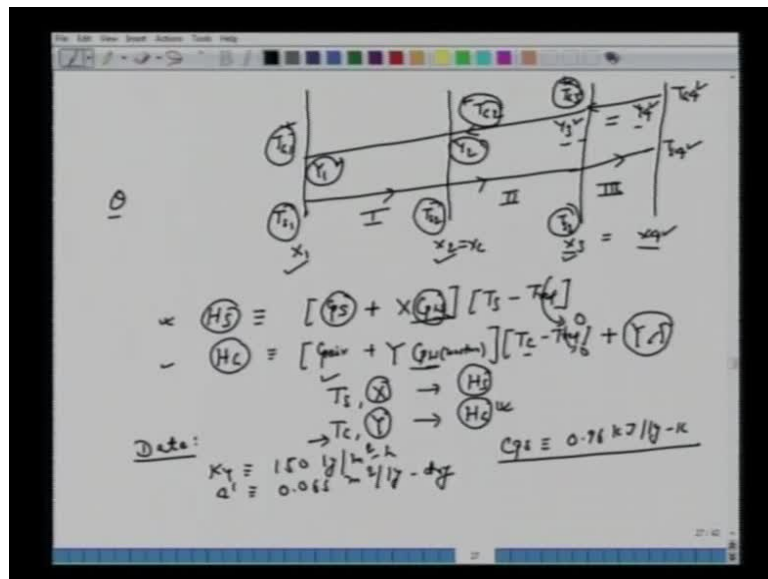 File Edit View Insert Actions Tools Help
T_C1 T_C2 T_C3 T_C4
Y_1 Y_2 Y_3 = Y_4
θ
T_S1 I T_S2 II T_S3 III T_S4
x_1 x_2 = x_c x_3 = x_4
H_S ≡ [C_PS + X C_PW] [T_S - T_ref] → 0
H_C ≡ [C_Pair + Y C_PW(water)] [T_C - T_ref] → 0 + Y λ
T_S, X → H_S
T_C, Y → H_C
Data:
K_Y ≡ 150 kg/m²-h
a' ≡ 0.065 m²/kg-dry
C_PS ≡ 0.96 kJ/kg-K
27